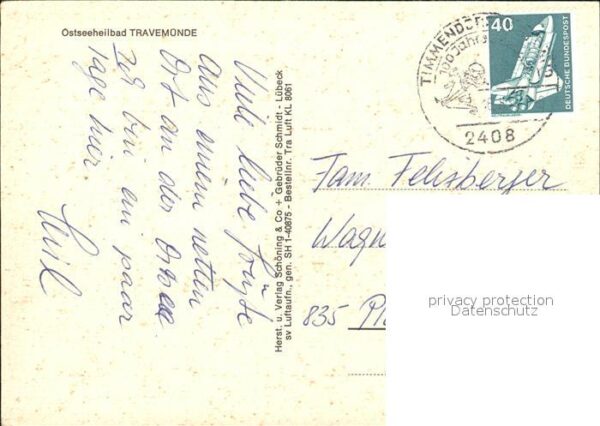 Ostseeheilbad TRAVEMÜNDE
Viele liebe Grüße
aus einem netten
Ort an der Ostsee
Ich bin ein paar
Tage hier.
Emil
Herst. u. Verlag Schöning & Co + Gebrüder Schmidt - Lübeck
sv Luftaufn., gen. SH 1-40875 - Bestellnr. Tra Luft KL 8061
TIMMENDOR
100 Jahre
2408
40
DEUTSCHE BUNDESPOST
Fam. Felixberger
Wagn
835
privacy protection
Datenschutz